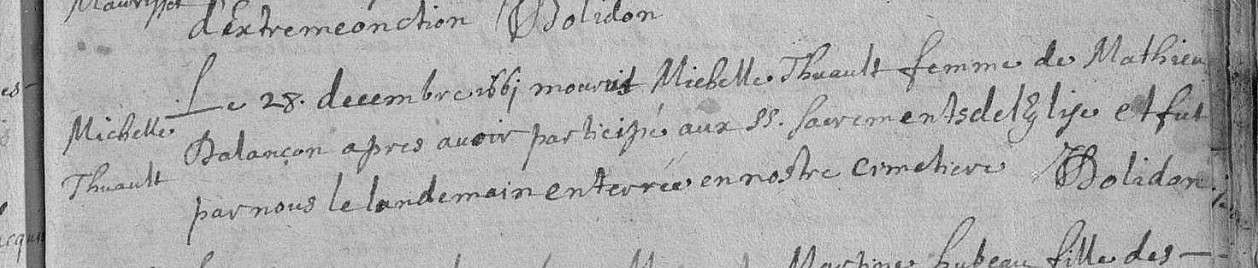 d'Extremeonction Bolidon
Le 28. decembre 1661 mourut Michelle Thuault femme de Mathieu
Michelle
Balançon apres avoir participé aux SS. Sacrements de l'Eglise et fut
Thuault
par nous le landemain enterrée en nostre cimetiere Bolidon
Martine hubeau fille des